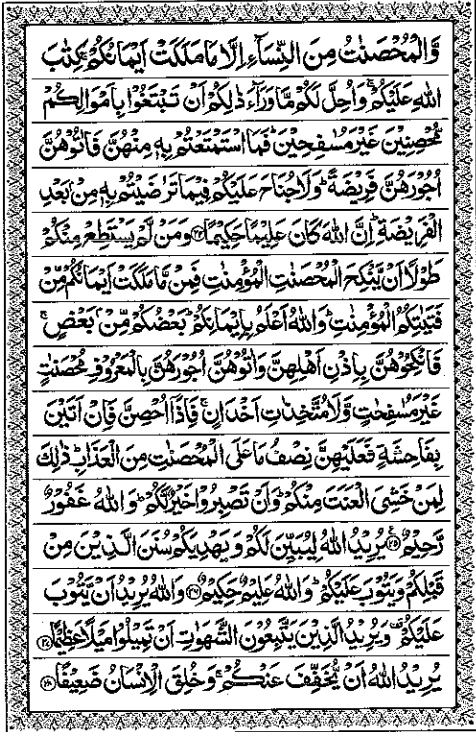 وَّالْمُحْصَنٰتُ مِنَ النِّسَآءِ اِلَّا مَا مَلَكَتْ اَيْمَانُكُمْ كِتٰبَ
اللّٰهِ عَلَيْكُمْ ۚ وَاُحِلَّ لَكُمْ مَّا وَرَآءَ ذٰلِكُمْ اَنْ تَبْتَغُوْا بِاَمْوَالِكُمْ
مُّحْصِنِيْنَ غَيْرَ مُسٰفِحِيْنَ ؕ فَمَا اسْتَمْتَعْتُمْ بِهٖ مِنْهُنَّ فَاٰتُوْهُنَّ
اُجُوْرَهُنَّ فَرِيْضَةً ؕ وَلَا جُنَاحَ عَلَيْكُمْ فِيْمَا تَرٰضَيْتُمْ بِهٖ مِنْۢ بَعْدِ
الْفَرِيْضَةِ ؕ اِنَّ اللّٰهَ كَانَ عَلِيْمًا حَكِيْمًا ﴿۲۴﴾ وَمَنْ لَّمْ يَسْتَطِعْ مِنْكُمْ
طَوْلًا اَنْ يَّنْكِحَ الْمُحْصَنٰتِ الْمُؤْمِنٰتِ فَمِنْ مَّا مَلَكَتْ اَيْمَانُكُمْ مِّنْ
فَتَيٰتِكُمُ الْمُؤْمِنٰتِ ؕ وَاللّٰهُ اَعْلَمُ بِاِيْمَانِكُمْ ؕ بَعْضُكُمْ مِّنْۢ بَعْضٍ ۚ
فَانْكِحُوْهُنَّ بِاِذْنِ اَهْلِهِنَّ وَاٰتُوْهُنَّ اُجُوْرَهُنَّ بِالْمَعْرُوْفِ مُحْصَنٰتٍ
غَيْرَ مُسٰفِحٰتٍ وَّلَا مُتَّخِذٰتِ اَخْدَانٍ ۚ فَاِذَاۤ اُحْصِنَّ فَاِنْ اَتَيْنَ
بِفَاحِشَةٍ فَعَلَيْهِنَّ نِصْفُ مَا عَلَى الْمُحْصَنٰتِ مِنَ الْعَذَابِ ؕ ذٰلِكَ
لِمَنْ خَشِيَ الْعَنَتَ مِنْكُمْ ؕ وَاَنْ تَصْبِرُوْا خَيْرٌ لَّكُمْ ؕ وَاللّٰهُ غَفُوْرٌ
رَّحِيْمٌ ﴿۲۵﴾ يُرِيْدُ اللّٰهُ لِيُبَيِّنَ لَكُمْ وَيَهْدِيَكُمْ سُنَنَ الَّذِيْنَ مِنْ
قَبْلِكُمْ وَيَتُوْبَ عَلَيْكُمْ ؕ وَاللّٰهُ عَلِيْمٌ حَكِيْمٌ ﴿۲۶﴾ وَاللّٰهُ يُرِيْدُ اَنْ يَّتُوْبَ
عَلَيْكُمْ ۫ وَيُرِيْدُ الَّذِيْنَ يَتَّبِعُوْنَ الشَّهَوٰتِ اَنْ تَمِيْلُوْا مَيْلًا عَظِيْمًا ﴿۲۷﴾
يُرِيْدُ اللّٰهُ اَنْ يُّخَفِّفَ عَنْكُمْ ۚ وَخُلِقَ الْاِنْسَانُ ضَعِيْفًا ﴿۲۸﴾